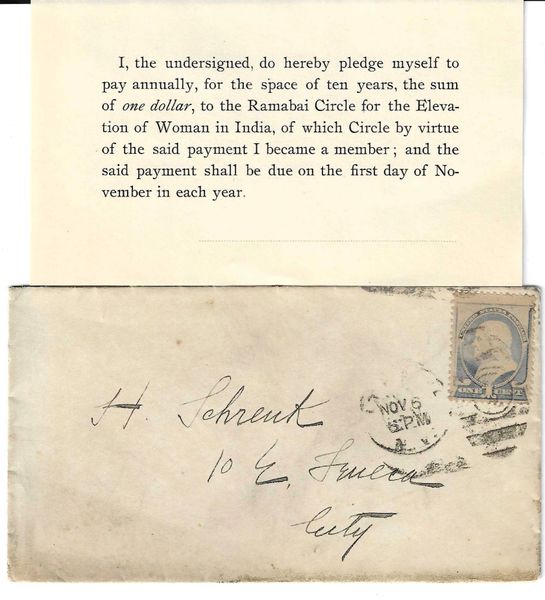 I, the undersigned, do hereby pledge myself to
pay annually, for the space of ten years, the sum
of one dollar, to the Ramabai Circle for the Eleva-
tion of Woman in India, of which Circle by virtue
of the said payment I became a member; and the
said payment shall be due on the first day of No-
vember in each year.
UNITED STATES POSTAGE
ONE CENT
NOV 6
PM
H. Schrenk
10 E. Seneca
City